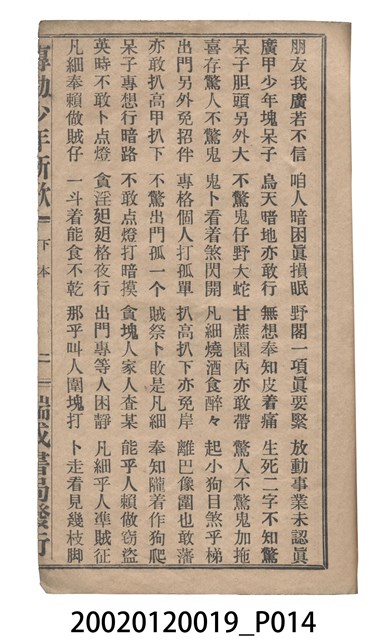 朋友我廣若不信 咱人暗困眞損眠 野閣一項眞要緊 放動事業未認眞
廣甲少年塊呆子 烏天暗地亦敢行 無想奉知皮着痛 生死二字不知驚
呆子胆頭另外大 不驚鬼仔野大蛇 甘蔗園內亦敢帶 驚人不驚鬼加拖
喜存驚人不驚鬼 鬼卜看着煞閃開 凡細燒酒食醉々 起小狗目煞乎梯
出門另外免招伴 專格個人打孤單 扒高扒下亦免岸 離巴像圍也敢藩
亦敢扒高甲扒下 不驚出門孤一个 賊祭卜敗是凡細 奉知隴着作狗爬
呆子專想行暗路 不敢点燈打暗摸 貪塊人家人査某 能乎人賴做窃盜
英時不敢卜点燈 貪淫廻廻格夜行 出門專等人困靜 凡細乎人準賊征
凡細奉賴做賊仔 一斗着能食不乾 那乎叫人圍塊打 卜走看見幾枝脚
專勸少年新歌 下本 二 瑞成書局發行
20020120019_P014